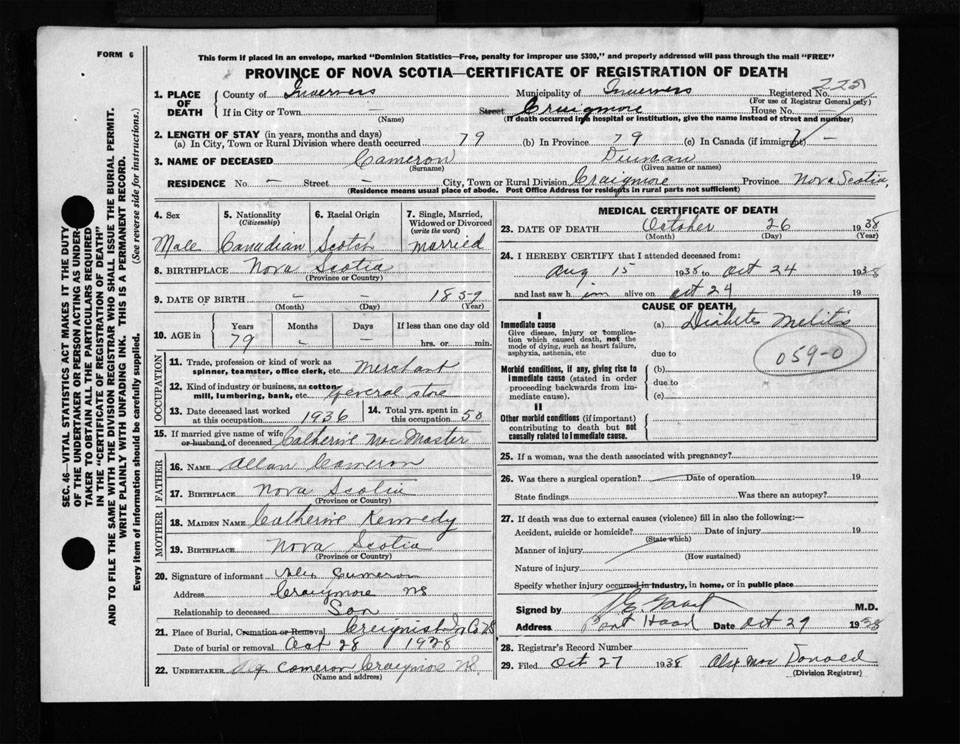 FORM 6
This form if placed in an envelope, marked "Dominion Statistics—Free, penalty for improper use $300," and properly addressed will pass through the mail "FREE"
PROVINCE OF NOVA SCOTIA—CERTIFICATE OF REGISTRATION OF DEATH
SEC. 46—VITAL STATISTICS ACT MAKES IT THE DUTY
OF THE UNDERTAKER OR PERSON ACTING AS UNDER-
TAKER TO OBTAIN ALL THE PARTICULARS REQUIRED
IN THE "CERTIFICATE OF REGISTRATION OF DEATH"
AND TO FILE THE SAME WITH THE DIVISION REGISTRAR WHO SHALL ISSUE THE BURIAL PERMIT.
WRITE PLAINLY WITH UNFADING INK. THIS IS A PERMANENT RECORD.
Every item of information should be carefully supplied. (See reverse side for instructions.)
1. PLACE OF DEATH
County of Inverness Municipality of Inverness Registered No.
(For use of Registrar General only)
If in City or Town — Street Craigmore House No. —
(Name) (If death occurred in a hospital or institution, give the name instead of street and number)
2. LENGTH OF STAY (in years, months and days)
(a) In City, Town or Rural Division where death occurred 79 (b) In Province 79 (c) In Canada (if immigrant) —
3. NAME OF DECEASED Cameron Duncan
(Surname) (Given name or names)
RESIDENCE No. — Street — City, Town or Rural Division Craigmore Province Nova Scotia
(Residence means usual place of abode. Post Office Address for residents in rural parts not sufficient)
4. Sex Male
5. Nationality (Citizenship) Canadian
6. Racial Origin Scotch
7. Single, Married, Widowed or Divorced (write the word) Married
8. BIRTHPLACE Nova Scotia
(Province or Country)
9. DATE OF BIRTH — — 1859
(Month) (Day) (Year)
10. AGE in Years 79 Months — Days — If less than one day old hrs. or min.
OCCUPATION
11. Trade, profession or kind of work as spinner, teamster, office clerk, etc. Merchant
12. Kind of industry or business, as cotton mill, lumbering, bank, etc. General store
13. Date deceased last worked at this occupation 1936 14. Total yrs. spent in this occupation 50
15. If married give name of wife or husband of deceased Catherine MacMaster
FATHER
16. NAME Allan Cameron
17. BIRTHPLACE Nova Scotia
(Province or Country)
MOTHER
18. MAIDEN NAME Catherine Kennedy
19. BIRTHPLACE Nova Scotia
(Province or Country)
20. Signature of informant Cameron
Address Craigmore NS
Relationship to deceased Son
21. Place of Burial, Cremation or Removal Creignish Co NS
Date of burial or removal Oct 28 1938
22. UNDERTAKER Cameron Craigmore NS.
(Name and address)
MEDICAL CERTIFICATE OF DEATH
23. DATE OF DEATH October 26 1938
(Month) (Day) (Year)
24. I HEREBY CERTIFY that I attended deceased from:
Aug 15 1938 to Oct 24 1938
and last saw him alive on Oct 24 19
CAUSE OF DEATH
I
Immediate cause (a) Diabetes Melitis
Give disease, injury or complication which caused death, not the mode of dying, such as heart failure, asphyxia, asthenia, etc
due to
059-0
Morbid conditions, if any, giving rise to immediate cause (stated in order proceeding backwards from immediate cause). (b)
due to
(c)
II
Other morbid conditions (if important) contributing to death but not causally related to Immediate cause.
25. If a woman, was the death associated with pregnancy?
26. Was there a surgical operation? — Date of operation 19
State findings Was there an autopsy?
27. If death was due to external causes (violence) fill in also the following:—
Accident, suicide or homicide? Date of injury 19
(State which)
Manner of injury
(How sustained)
Nature of injury
Specify whether injury occurred in industry, in home, or in public place
Signed by M.D.
Address Port Hood Date Oct 29 1938
28. Registrar's Record Number
29. Filed Oct 27 1938 Alex MacDonald
(Division Registrar)